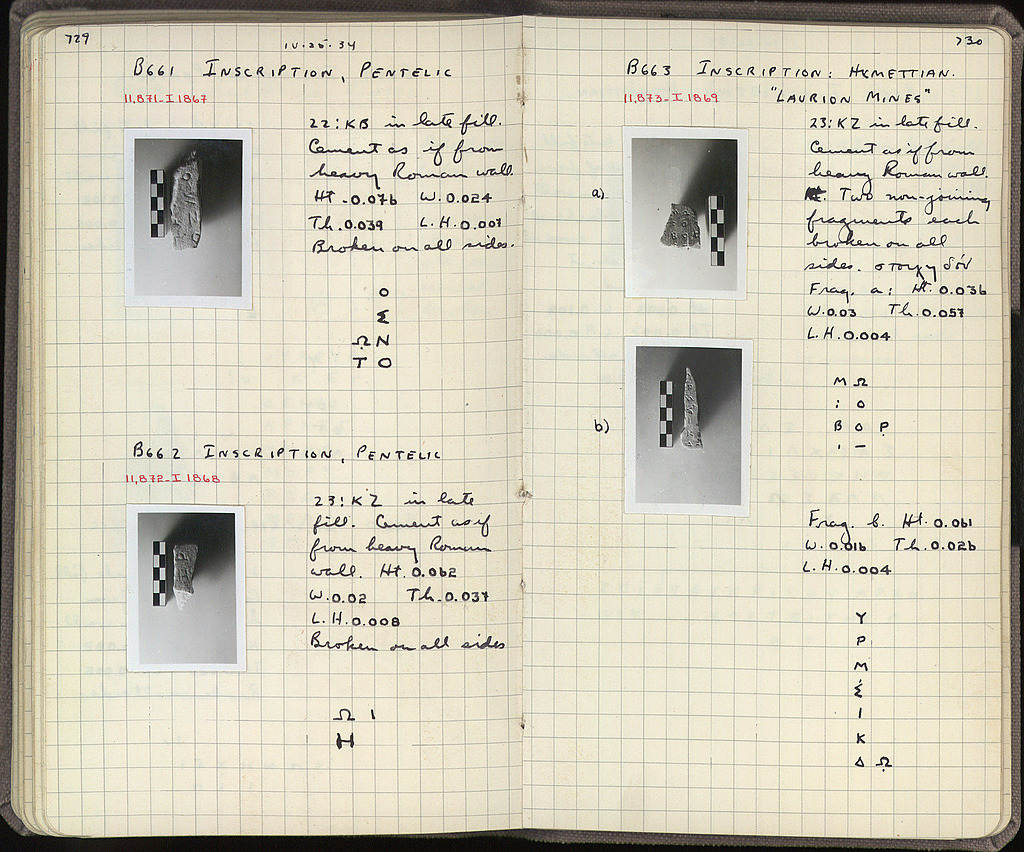 729
IV·25·34
B661 INSCRIPTION, PENTELIC
11,871-I 1867
22:KB in late fill.
Cement as if from
heavy Roman wall.
Ht. 0.076 W. 0.024
Th. 0.039 L.H. 0.007
Broken on all sides.
Ο
Σ
Ω Ν
Τ Ο
B662 INSCRIPTION, PENTELIC
11,872-I 1868
23:KZ in late
fill. Cement as if
from heavy Roman
wall. Ht. 0.062
W. 0.02 Th. 0.037
L.H. 0.008
Broken on all sides
Ω Ι
Η
730
B663 INSCRIPTION: HYMETTIAN.
11,873-I 1869
"LAURION MINES"
23:KZ in late fill.
Cement as if from
heavy Roman wall.
Two non-joining
a)
fragments each
broken on all
sides. στοιχηδόν
Frag. a: Ht. 0.036
W. 0.03 Th. 0.057
L.H. 0.004
Μ Ω
: Ο
Β Ο Ρ̣
Ι –
b)
Frag. b. Ht. 0.061
W. 0.016 Th. 0.026
L.H. 0.004
Υ
Ρ
Μ
Σ
Ι
Κ
Δ Ω̣